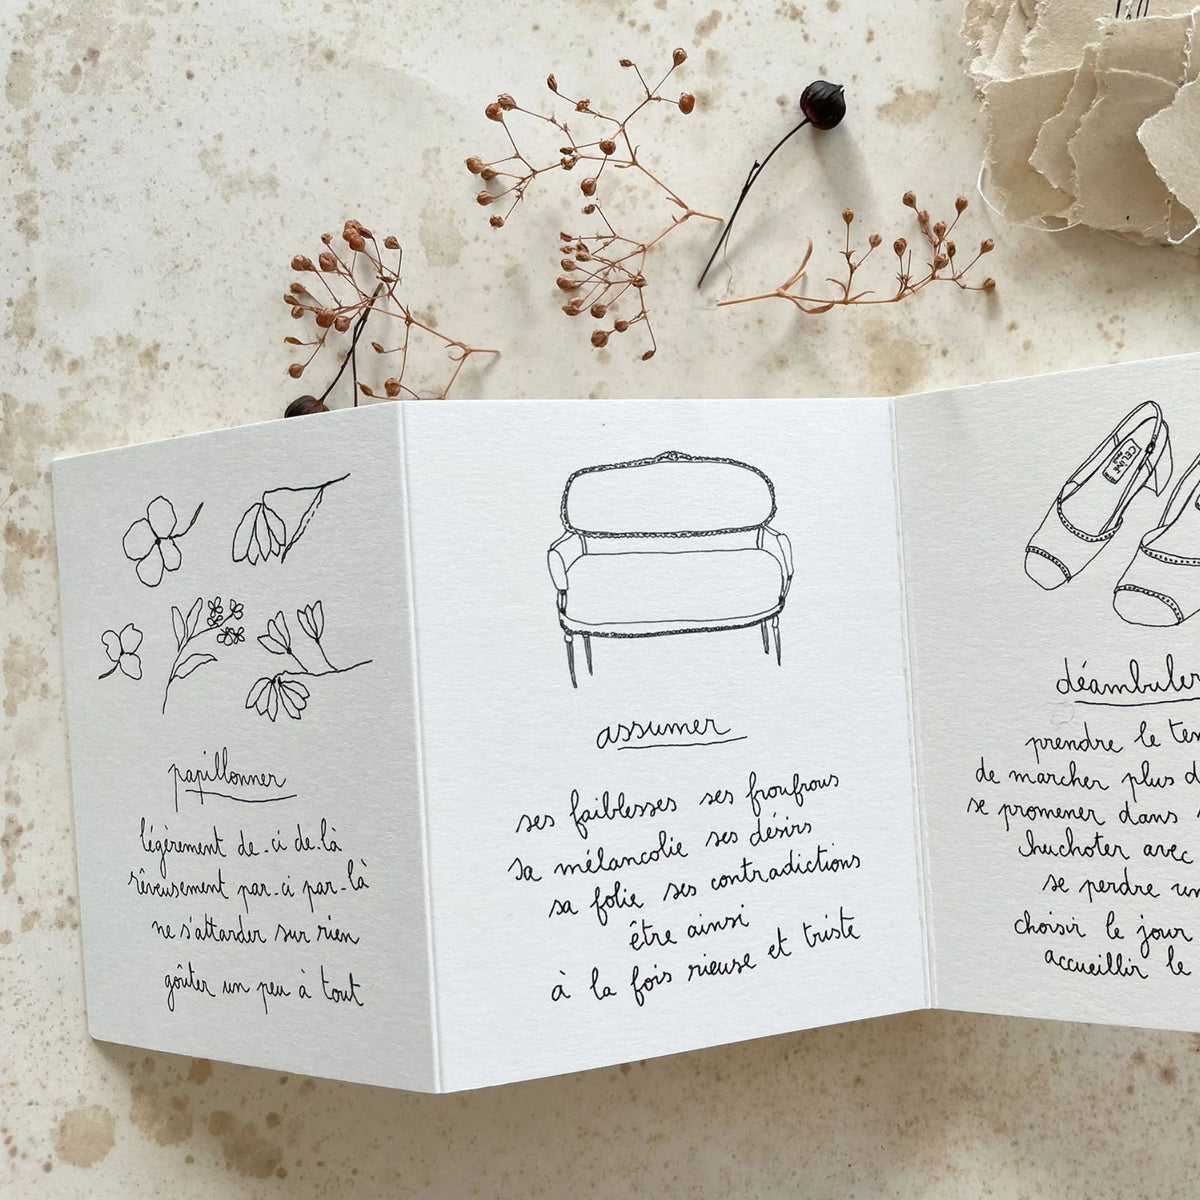 papillonner
légèrement de-ci de-là
rêveusement par-ci par-là
ne s'attarder sur rien
goûter un peu à tout
assumer
ses faiblesses ses froufrous
sa mélancolie ses désirs
sa folie ses contradictions
être ainsi
à la fois rieuse et triste
CELINE
déambuler
prendre le
de marcher plus
se promener dans
chuchoter avec
se perdre
choisir le jour
accueillir le